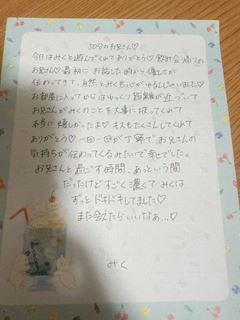 30分のお兄さん♡
今日はみくと遊んでくれてありがとう♡飲み会帰りの
お兄さん♡最初にお話しした時から優しさが
伝わってきて、自然とみくも心がゆるんじゃいました♡
お部屋に入ってからはゆっくり距離が近づいて
お兄さんがみくのことを大事に扱ってくれて
本当に嬉しかったよ♡キスもたくさんしてくれて
ありがとう♡一回一回が丁寧でお兄さんの
気持ちが伝わってくるみたいで幸せでした。
お兄さんと過ごす時間、あっという間
だったけどすごく濃くてみくは
ずっとドキドキしてました♡
また会えたらいいなぁ...♡
みく